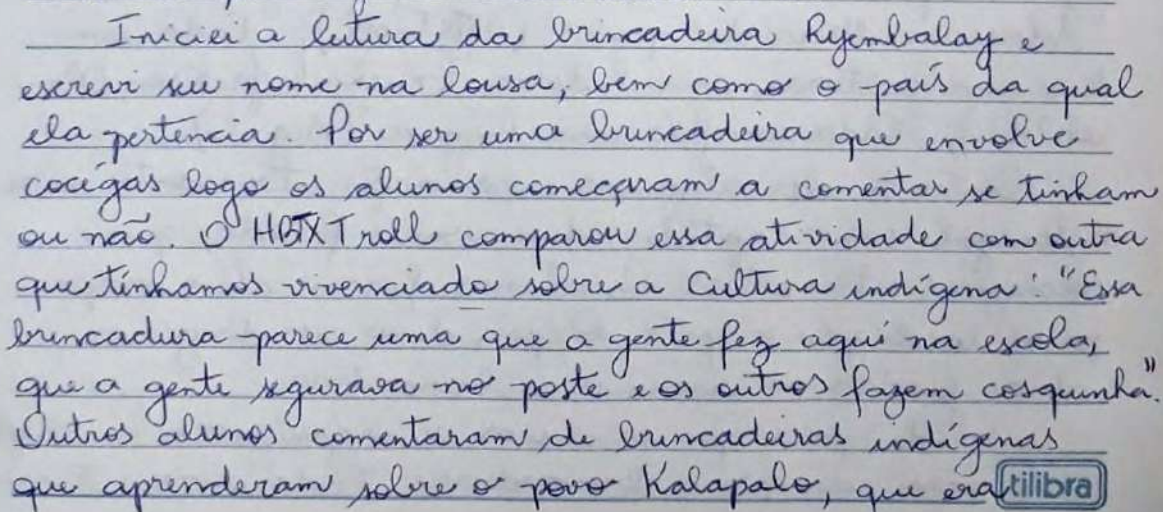 Iniciei a leitura da brincadeira Ryembalay e
escrevi seu nome na lousa, bem como o país da qual
ela pertencia. Por ser uma brincadeira que envolve
cocégas logo os alunos começaram a comentar se tinham
ou não. O HBTXTroll comparou essa atividade com outra
que tínhamos vivenciado sobre a Cultura indígena: "Essa
brincadeira parece uma que a gente fez aqui na escola,
que a gente segurava no poste e os outros fazem cosquinha".
Outros alunos comentaram de brincadeiras indígenas
que aprenderam sobre o povo Kalapalo, que era
tilibra